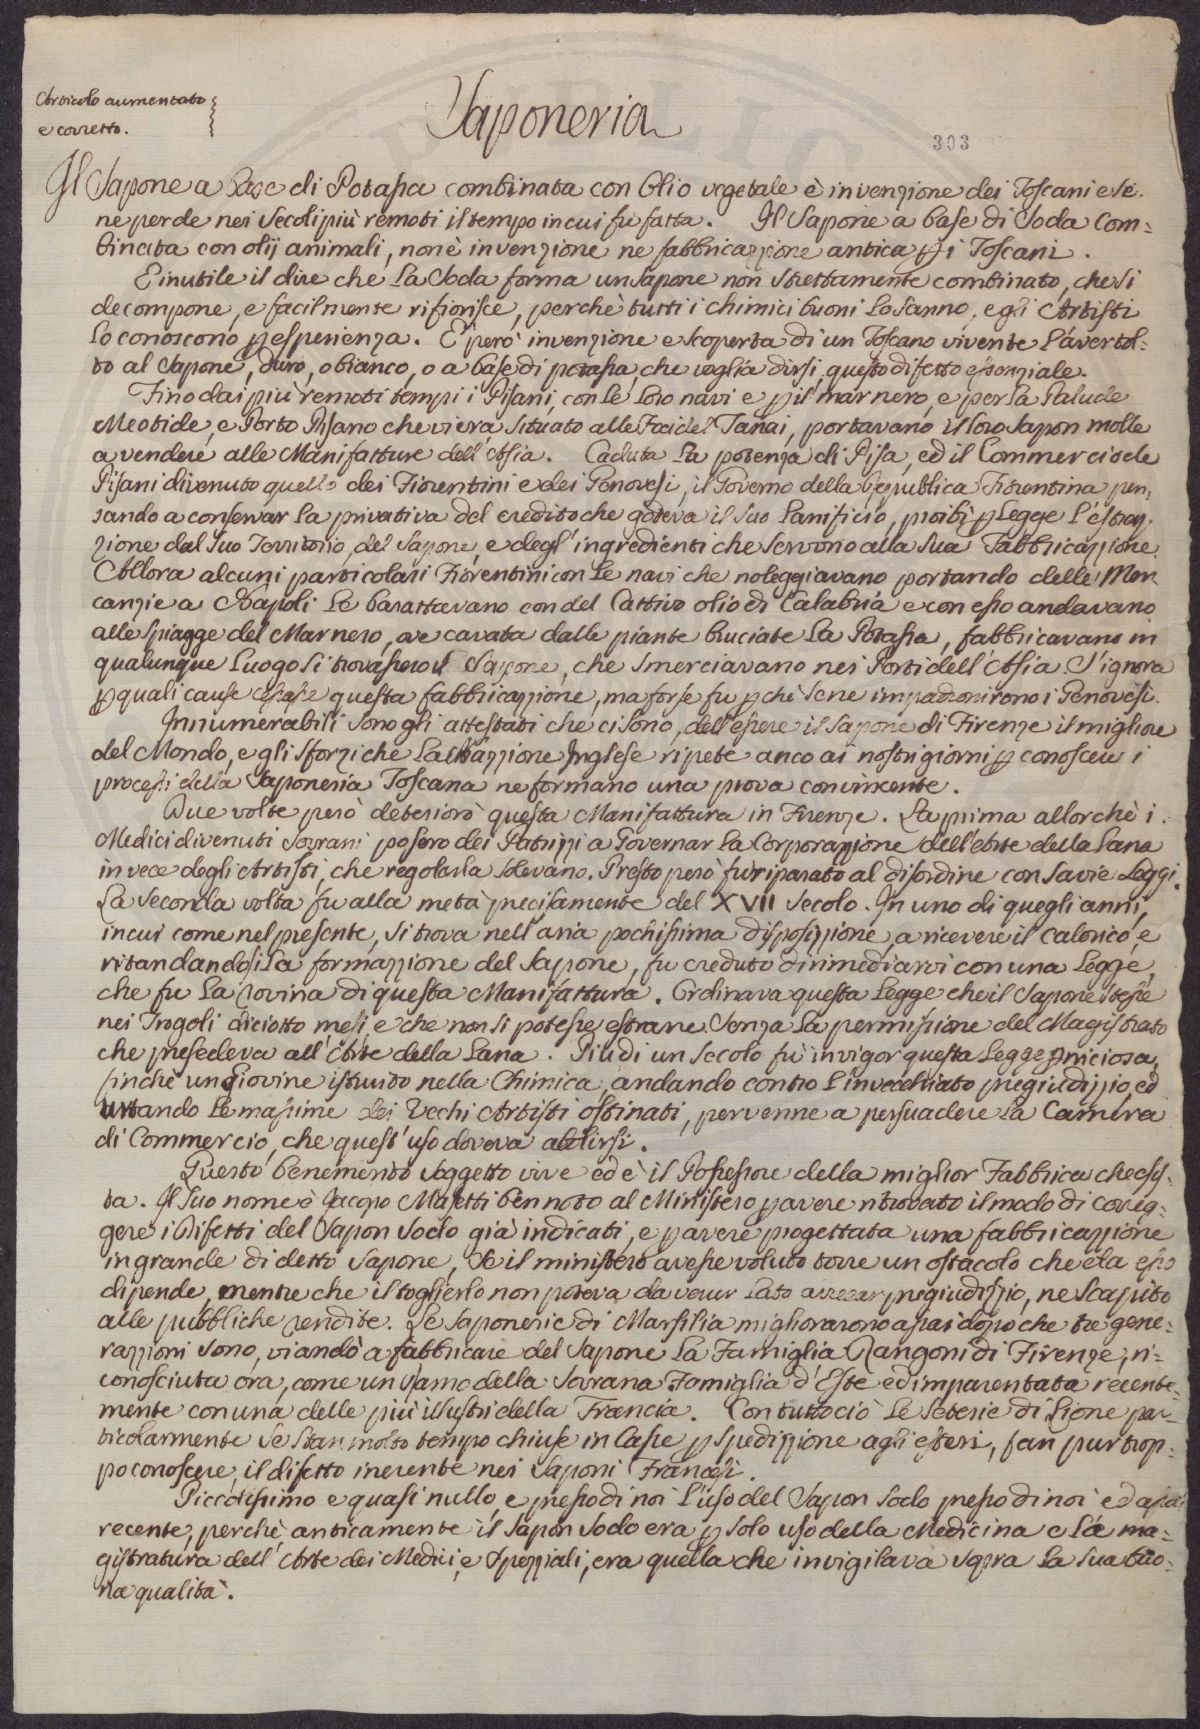 Articolo aumentato
e corretto.
Saponeria
303
Il Sapone a base di Potassa combinata con Olio vegetale è invenzione dei Toscani e se
ne perde nei secoli più remoti il tempo in cui fu fatta. Il Sapone a base di Soda com=
binata con olij animali, non è invenzione ne fabbricazzione antica pei Toscani.
E inutile il dire che la Soda forma un sapone non strettamente combinato, che si
decompone, e facilmente rifiorisce, perchè tutti i chimici buoni lo sanno, e gli Artisti
lo conoscono p esperienza. E però invenzione e scoperta di un Toscano vivente l'aver tol=
to al Sapone, duro, o bianco, o a base di potassa, che voglia dirsi, questo difetto essenziale.
Fino dai più remoti tempi i Pisani, con le loro navi e p il mar nero, e per la Palude
Meotide, e Porto Pisano che vi era situato alle Foci del Tanai, portavano il loro sapon molle
a vendere alle Manifatture dell'Asia. Caduta la potenza di Pisa, ed il Commercio de
Pisani divenuto quello dei Fiorentini e dei Genovesi, il Governo della Republica Fiorentina pen,
sando a conservar la privativa del credito che godeva il suo lanificio, proibì p Legge l'estra
zione dal suo Territorio, del Sapone, e degl'ingredienti che servono alla sua Fabbricazzione.
Allora alcuni particolari Fiorentini con le navi che noleggiavano portando delle Mer
canzie a Napoli le barattavano con del Cattivo olio di Calabria e con esso andavano
alle spiagge del Mar nero, ove cavata dalle piante bruciate la Potassa, fabbricavano in
qualunque luogo si trovassero il Sapone, che smerciavano nei Porti dell'Asia. S'ignora
p quali cause cessasse questa fabbricazzione, ma forse fu pchè se ne impadronirono i Genovesi.
Innumerabili sono gli attestati che ci sono, dell'essere il sapone di Firenze il migliore
del Mondo, e gli sforzi che la Nazzione Inglese ripete anco ai nostri giorni p conoscere i
processi della Saponeria Toscana ne formano una prova convincente.
Due volte però deteriorò questa Manifattura in Firenze. La prima allorchè i
Medici divenuti Sovrani posero dei Patrizzi a Governar la Corporazzione dell'arte della Lana
in vece degli Artisti, che regolarla solevano. Presto però fu riparato al disordine con savie Leggi.
La seconda volta fu alla metà precisamente del XVII secolo. In uno di quegli anni,
in cui come nel presente, si trova nell'aria pochissima disposizzione a ricevere il calorico, e
ritardandosi la formazzione del Sapone, fu creduto di rimediarvi con una Legge,
che fu la rovina di questa Manifattura. Ordinava questa Legge che il Sapone stesse
nei Trogoli diciotto mesi e che non si potesse estrarne senza la permissione del Magistrato
che presedeva all'Arte della Lana. Più di un secolo fu in vigor questa Legge pniciosa,
finchè un Giovine istruito nella Chimica, andando contro l'invecchiato pregiudizzio, ed
urtando le massime dei Vecchi Artisti ostinati, pervenne a persuadere la Camera
di Commercio, che quest'uso doveva abolirsi.
Questo benemerito soggetto vive ed è il Possessore della miglior Fabbrica che esis=
ta. Il suo nome è Jacopo Masetti ben noto al Ministero p avere ritrovato il modo di correg=
gere i difetti del Sapon sodo già indicati, e p avere progettata una fabbricazzione
in grande di detto Sapone, se il ministero avesse voluto torre un ostacolo che da esso
dipende, mentre che il toglierlo non poteva da verun lato arrecar pregiudizzio, ne scapito
alle pubbliche rendite. Le Saponerie di Marsilia migliorarono assai dopo che tre gene=
razzioni sono, vi andò a fabbricare del Sapone la Famiglia Rangoni di Firenze, ri=
conosciuta ora, come un ramo della Sovrana Famiglia d'Este ed imparentata recente=
mente con una delle più illustri della Francia. Con tutto ciò le Seterie di Lione par=
ticolarmente se stan molto tempo chiuse in Casse p spedizzione agli esteri, fan pur trop=
po conoscere, il difetto inerente nei Saponi Francesi.
Piccolissimo e quasi nullo, e presso di noi l'uso del Sapon sodo presso di noi ed assai
recente, perchè anticamente il Sapon sodo era p solo uso della Medicina e la ma=
gistratura dell'Arte dei Medici, e Speziali, era quella che invigilava sopra la sua buo=
na qualità.